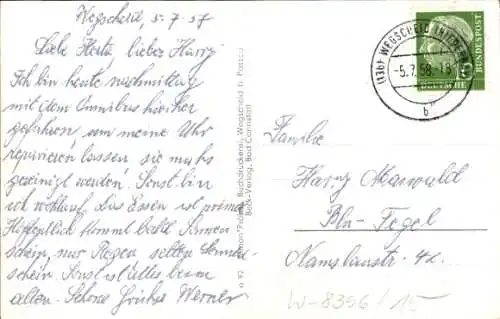 Wegscheid 5.7.57
Liebe Herta, lieber Harry
Ich bin heute nachmittag
mit dem Omnibus hierher
gefahren um meine Uhr
reparieren lassen sie muß
gereinigt werden. Sonst bin
ich wohlauf. Das Essen ist prima
Hoffentlich kommt bald Sonnen
schein, nur Regen selten Sonnen-
schein. Sonst ist Alles beim
alten. Schöne Grüße Werner
Buchdruckerei, Wegscheid b. Passau
Bock-Verlag, Bad Cannstatt
(13b) WEGSCHEID
-5.7.58.-18
b
DEUTSCHE
BUNDESPOST
10
Familie
Harry
Bln-Tegel
Namslaustr.
W-8356/15